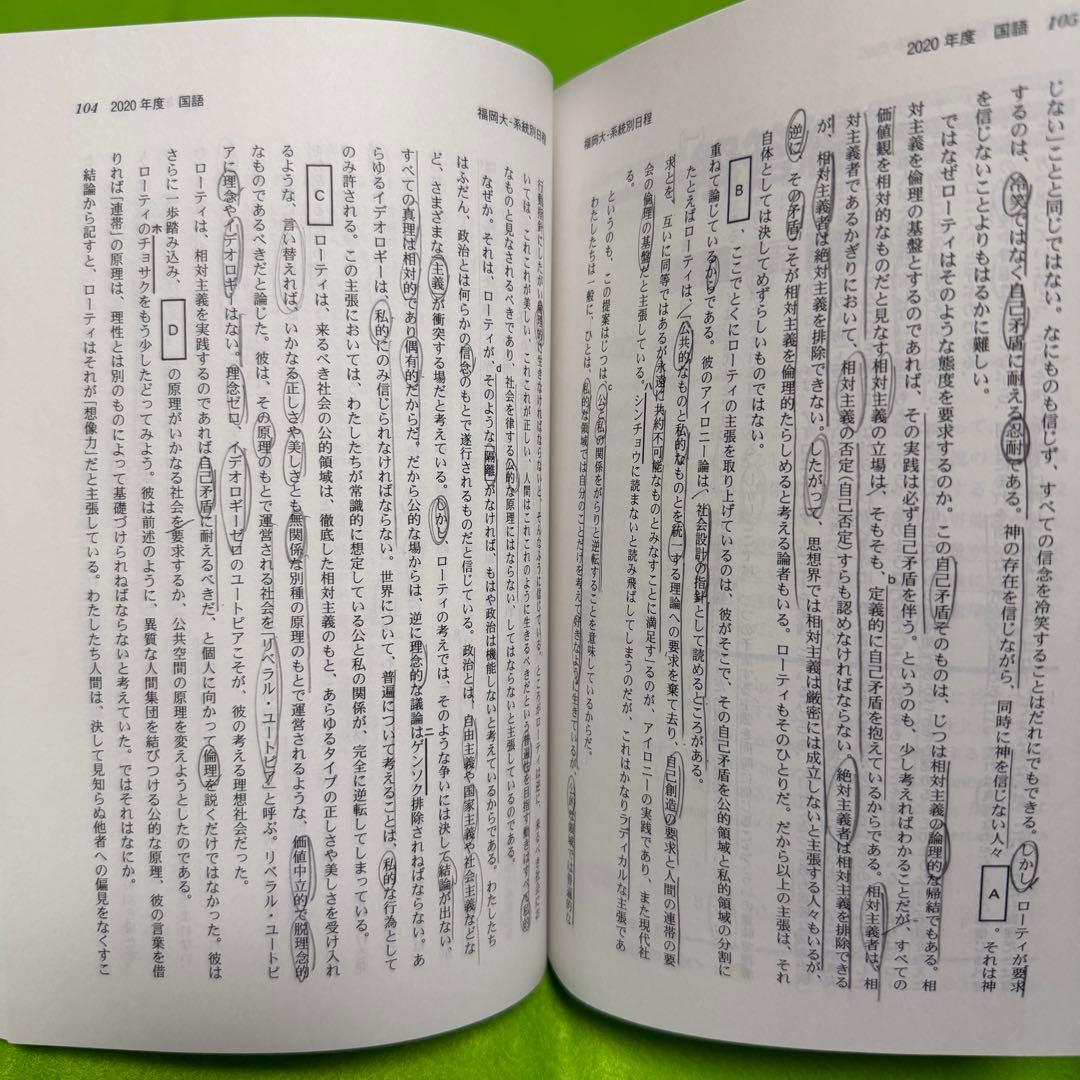 2020年度 国語 105
福岡大-系統別日程
じない」ことと同じではない。なにものも信じず、すべての信念を冷笑することはだれにでもできる。しかし、ローティが要求
するのは、冷笑ではなく自己矛盾に耐える忍耐である。神の存在を信じながら、同時に神を信じない人々 A 。それは神
を信じないことよりもはるかに難しい。
ではなぜローティはそのような態度を要求するのか。この自己矛盾そのものは、じつは相対主義の論理的な帰結でもある。相
対主義を倫理の基盤とするのであれば、その実践は必ず自己矛盾を伴う。というのも、少し考えればわかることだが、すべての
価値観を相対的なものだと見なす相対主義の立場は、そもそも、定義的に自己矛盾を抱えているからである。相対主義者は、相
対主義者であるかぎりにおいて、相対主義の否定(自己否定)すらも認めなければならない。絶対主義者は相対主義を排除できる
が、相対主義者は絶対主義を排除できない。したがって、思想界では相対主義は厳密には成立しないと主張する人々もいるが、
逆に、その矛盾こそが相対主義を倫理的たらしめると考える論者もいる。ローティもそのひとりだ。だから以上の主張は、それ
自体としては決してめずらしいものではない。
B 、ここでとくにローティの主張を取り上げているのは、彼がそこで、その自己矛盾を公的領域と私的領域の分割に
重ねて論じているからである。彼のアイロニー論は、社会設計の指針として読めるところがある。
たとえばローティは、「公共的なものと私的なものとを統一する理論への要求を棄て去り、自己創造の要求と人間の連帯の要
求とを、互いに同等ではあるが永遠に共約不可能なものとみなすことに満足す」るのが、アイロニーの実践であり、また現代社
会の倫理の基盤だと主張している。シンチョウに読まないと読み飛ばしてしまうのだが、これはかなりラディカルな主張であ
ハ
る。
というのも、この提案はじつは、公と私の関係をがらりと逆転することを意味しているからだ。
c
わたしたちは一般に、ひとは、私的な領域では自分のことだけを考えて好きなように生きているが、公的な領域では普遍的な
b
104 2020年度 国語
福岡大-系統別日程
いては、これこれが美しい、これこれが正しい、人間はこれこれのように生きるべきだという普遍性を目指す働きはすべて私的
なものと見なされるべきであり、社会を律する公的な原理にはならない、してはならないと主張しているのである。
なぜか。それは、ローティが、そのような隔離がなければ、もはや政治は機能しないと考えているからである。わたしたち
d
はふだん、政治とは何らかの信念のもとで遂行されるものだと信じている。政治とは、自由主義や国家主義や社会主義などな
ど、さまざまな「主義」が衝突する場だと考えている。しかし、ローティの考えでは、そのような争いには決して結論が出ない。
すべての真理は相対的であり偶有的だからだ。だから公的な場からは、逆に理念的な議論はゲンソク排除されねばならない。あ
ニ
らゆるイデオロギーは、私的にのみ信じられなければならない。世界について、普遍について考えることは、私的な行為として
のみ許される。この主張においては、わたしたちが常識的に想定している公と私の関係が、完全に逆転してしまっている。
C ローティは、来るべき社会の公的領域は、徹底した相対主義のもと、あらゆるタイプの正しさや美しさを受け入れ
るような、言い替えれば、いかなる正しさや美しさとも無関係な別種の原理のもとで運営されるような、価値中立的で脱理念的
なものであるべきだと論じた。彼は、その原理のもとで運営される社会を「リベラル・ユートピア」と呼ぶ。リベラル・ユートピ
アに理念やイデオロギーはない。理念ゼロ、イデオロギーゼロのユートピアこそが、彼の考える理想社会だった。
ローティは、相対主義を実践するのであれば自己矛盾に耐えるべきだ、と個人に向かって倫理を説くだけではなかった。彼は
さらに一歩踏み込み、 D の原理がいかなる社会を要求するか、公共空間の原理を変えようとしたのである。
ローティのチョサクをもう少したどってみよう。彼は前述のように、異質な人間集団を結びつける公的な原理、彼の言葉を借
ホ
りれば「連帯」の原理は、理性とは別のものによって基礎づけられねばならないと考えていた。ではそれはなにか。
結論から記すと、ローティはそれが「想像力」だと主張している。わたしたち人間は、決して見知らぬ他者への偏見をなくすこ